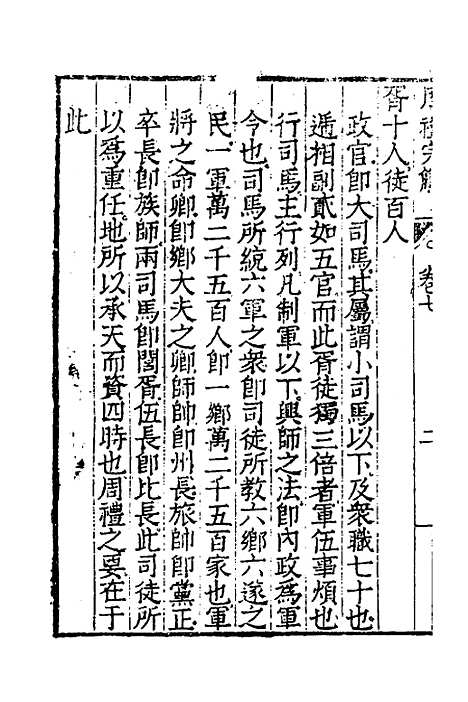 周禮完解 卷七 二
胥十人徒百人
政官卽大司馬其屬謂小司馬以下及衆職七十也
遞相副貳如五官而此胥徒獨三倍者軍伍事煩也
行司馬主行列凡制軍以下興師之法卽內政爲軍
令也司馬所統六軍之衆卽司徒所教六鄉六遂之
民一軍萬二千五百人卽一鄉萬二千五百家也軍
將之命卿卽鄉大夫之卿師帥卽州長旅帥卽黨正
卒長卽族師兩司馬卽閭胥伍長卽比長此司徒所
以爲重任地所以承天而資四時也周禮之要在于
此